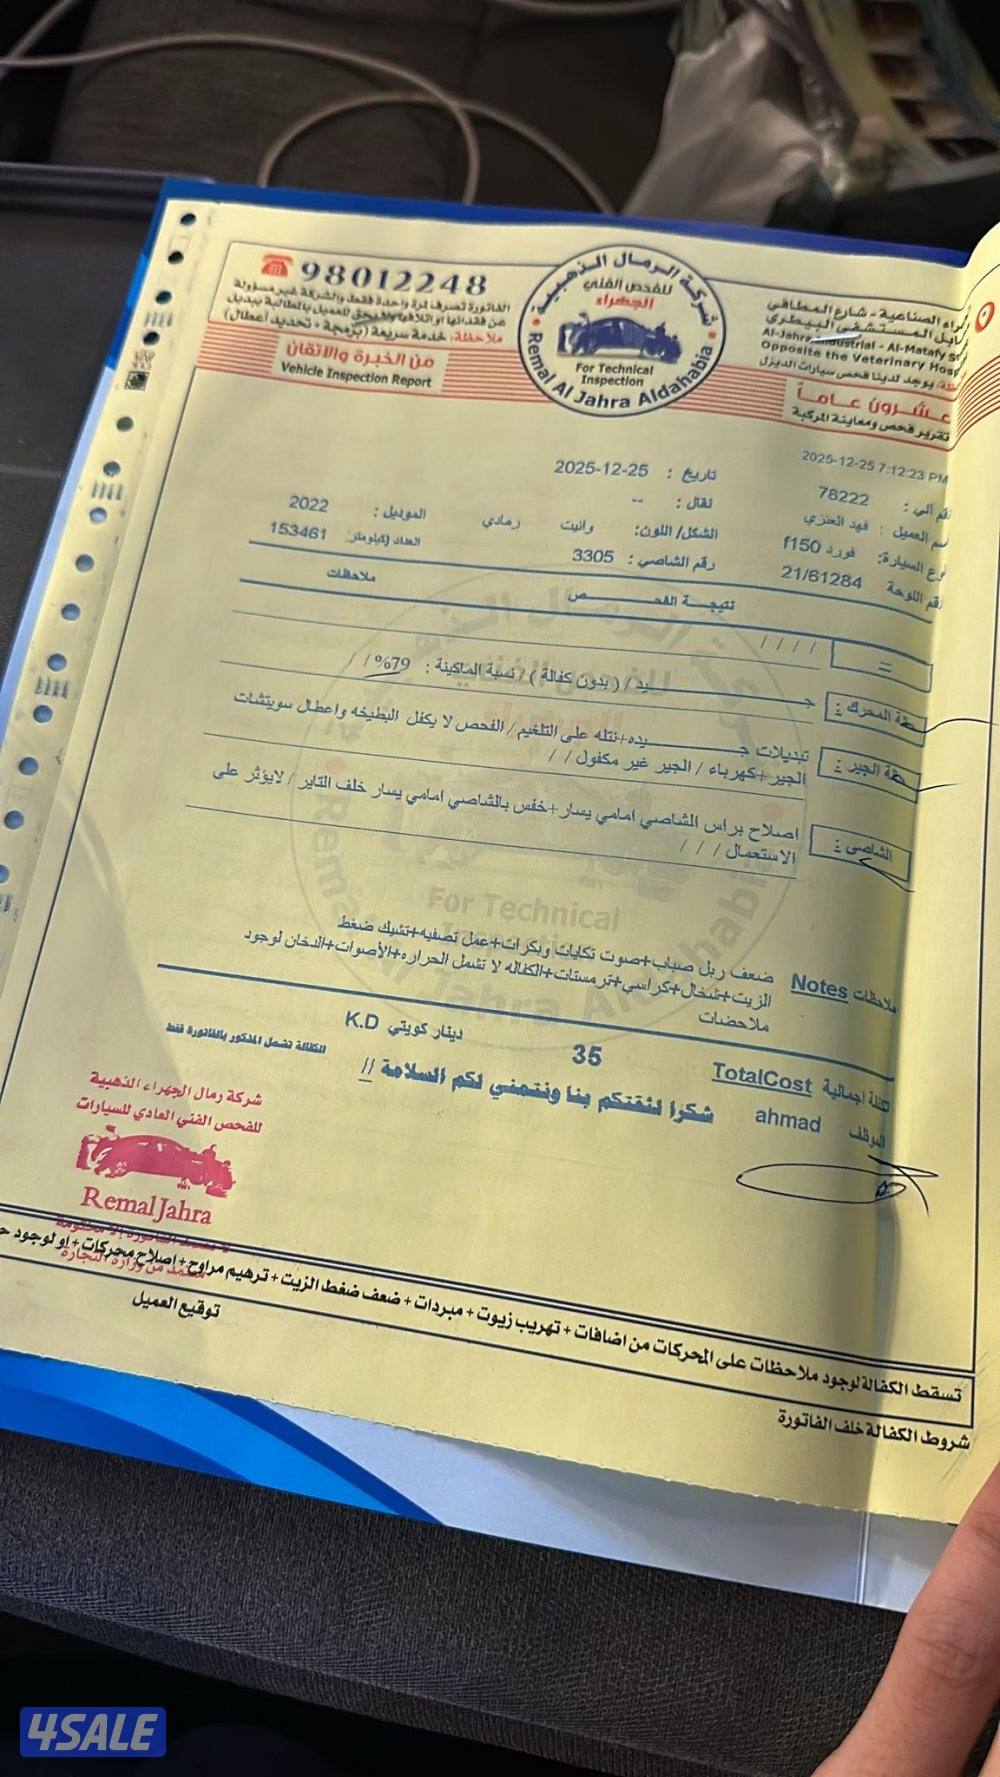 98012248
الفاتورة تصرف لمرة واحدة فقط والشركة غير مسؤولة
عن فقدانها او اتلافها ولايحق للعميل بالمطالبة ببديل
ملاحظة: خدمة سريعة (برمجة + تحديد أعطال)
من الخبرة والاتقان
Vehicle Inspection Report
شركة الرمال الذهبية
للفحص الفني
الجهراء
For Technical
Inspection
Remal Al Jahra Aldahabia
الصناعية - شارع المطافي
المستشفى البيطري
Al-Jahra Industrial - Al-Matafy
Opposite the Veterinary
يوجد لدينا فحص سيارات الديزل
عشرون عاماً
تقرير فحص ومعاينة المركبة
2025-12-25 7:12:23 PM
تاريخ : 2025-12-25
رقم آلي : 78222
نقال : --
اسم العميل : فهد العنزي
الموديل : 2022
الشكل/ اللون: وانيت رمادي
نوع السيارة: فورد f150
العداد (كيلومتر) 153461
رقم الشاصي : 3305
رقم اللوحة 21/61284
نتيجة الفحص
ملاحظات
= / / / /
المحرك : جيد / ( بدون كفالة ) / نسبة الماكينة : 79% /
الجير : تبديلات جيده+نتله على التلغيم / الفحص لا يكفل البطيخه واعطال سويتشات
الجير+كهرباء / الجير غير مكفول / /
الشاصي : اصلاح براس الشاصي امامي يسار+خفس بالشاصي امامي يسار خلف التاير / لايؤثر على
الاستعمال / / /
ملاحظات Notes ضعف ربل صباب+صوت تكايات وبكرات+عمل تصفيه+تشيك ضغط
الزيت+شخال+كراسي+ترمستات+الكفاله لا تشمل الحراره+الأصوات+الدخان لوجود
ملاحضات
تكلفة اجمالية TotalCost 35 دينار كويتي K.D
الكفالة تشمل المذكور بالفاتورة فقط
الموظف ahmad
شكرا لثقتكم بنا ونتمني لكم السلامة //
شركة رمال الجهراء الذهبية
للفحص الفني العادي للسيارات
Remal Jahra
معتمد من وزارة التجارة
تسقط الكفالة لوجود ملاحظات على المحركات من اضافات + تهريب زيوت + مبردات + ضعف ضغط الزيت + ترهيم مراوح + اصلاح محركات + او لوجود
شروط الكفالة خلف الفاتورة
توقيع العميل
4SALE